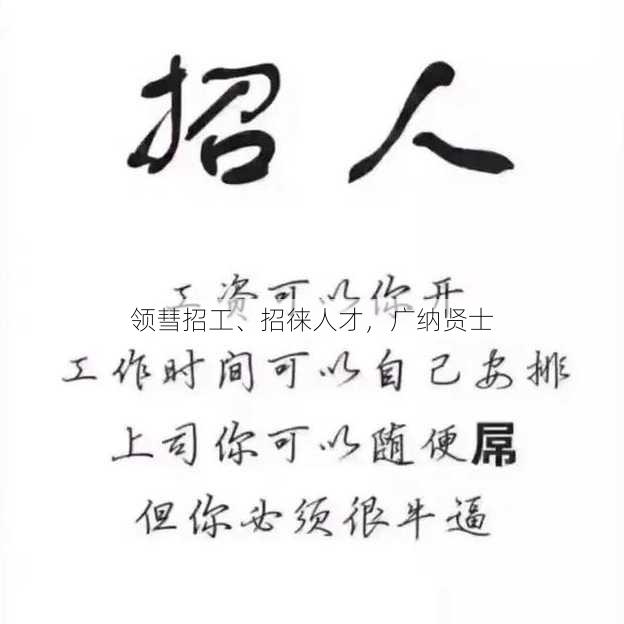 招人
工资可以你开
领彗招工、招徕人才，广纳贤士
工作时间可以自己安排
上司你可以随便屌
但你必须很牛逼